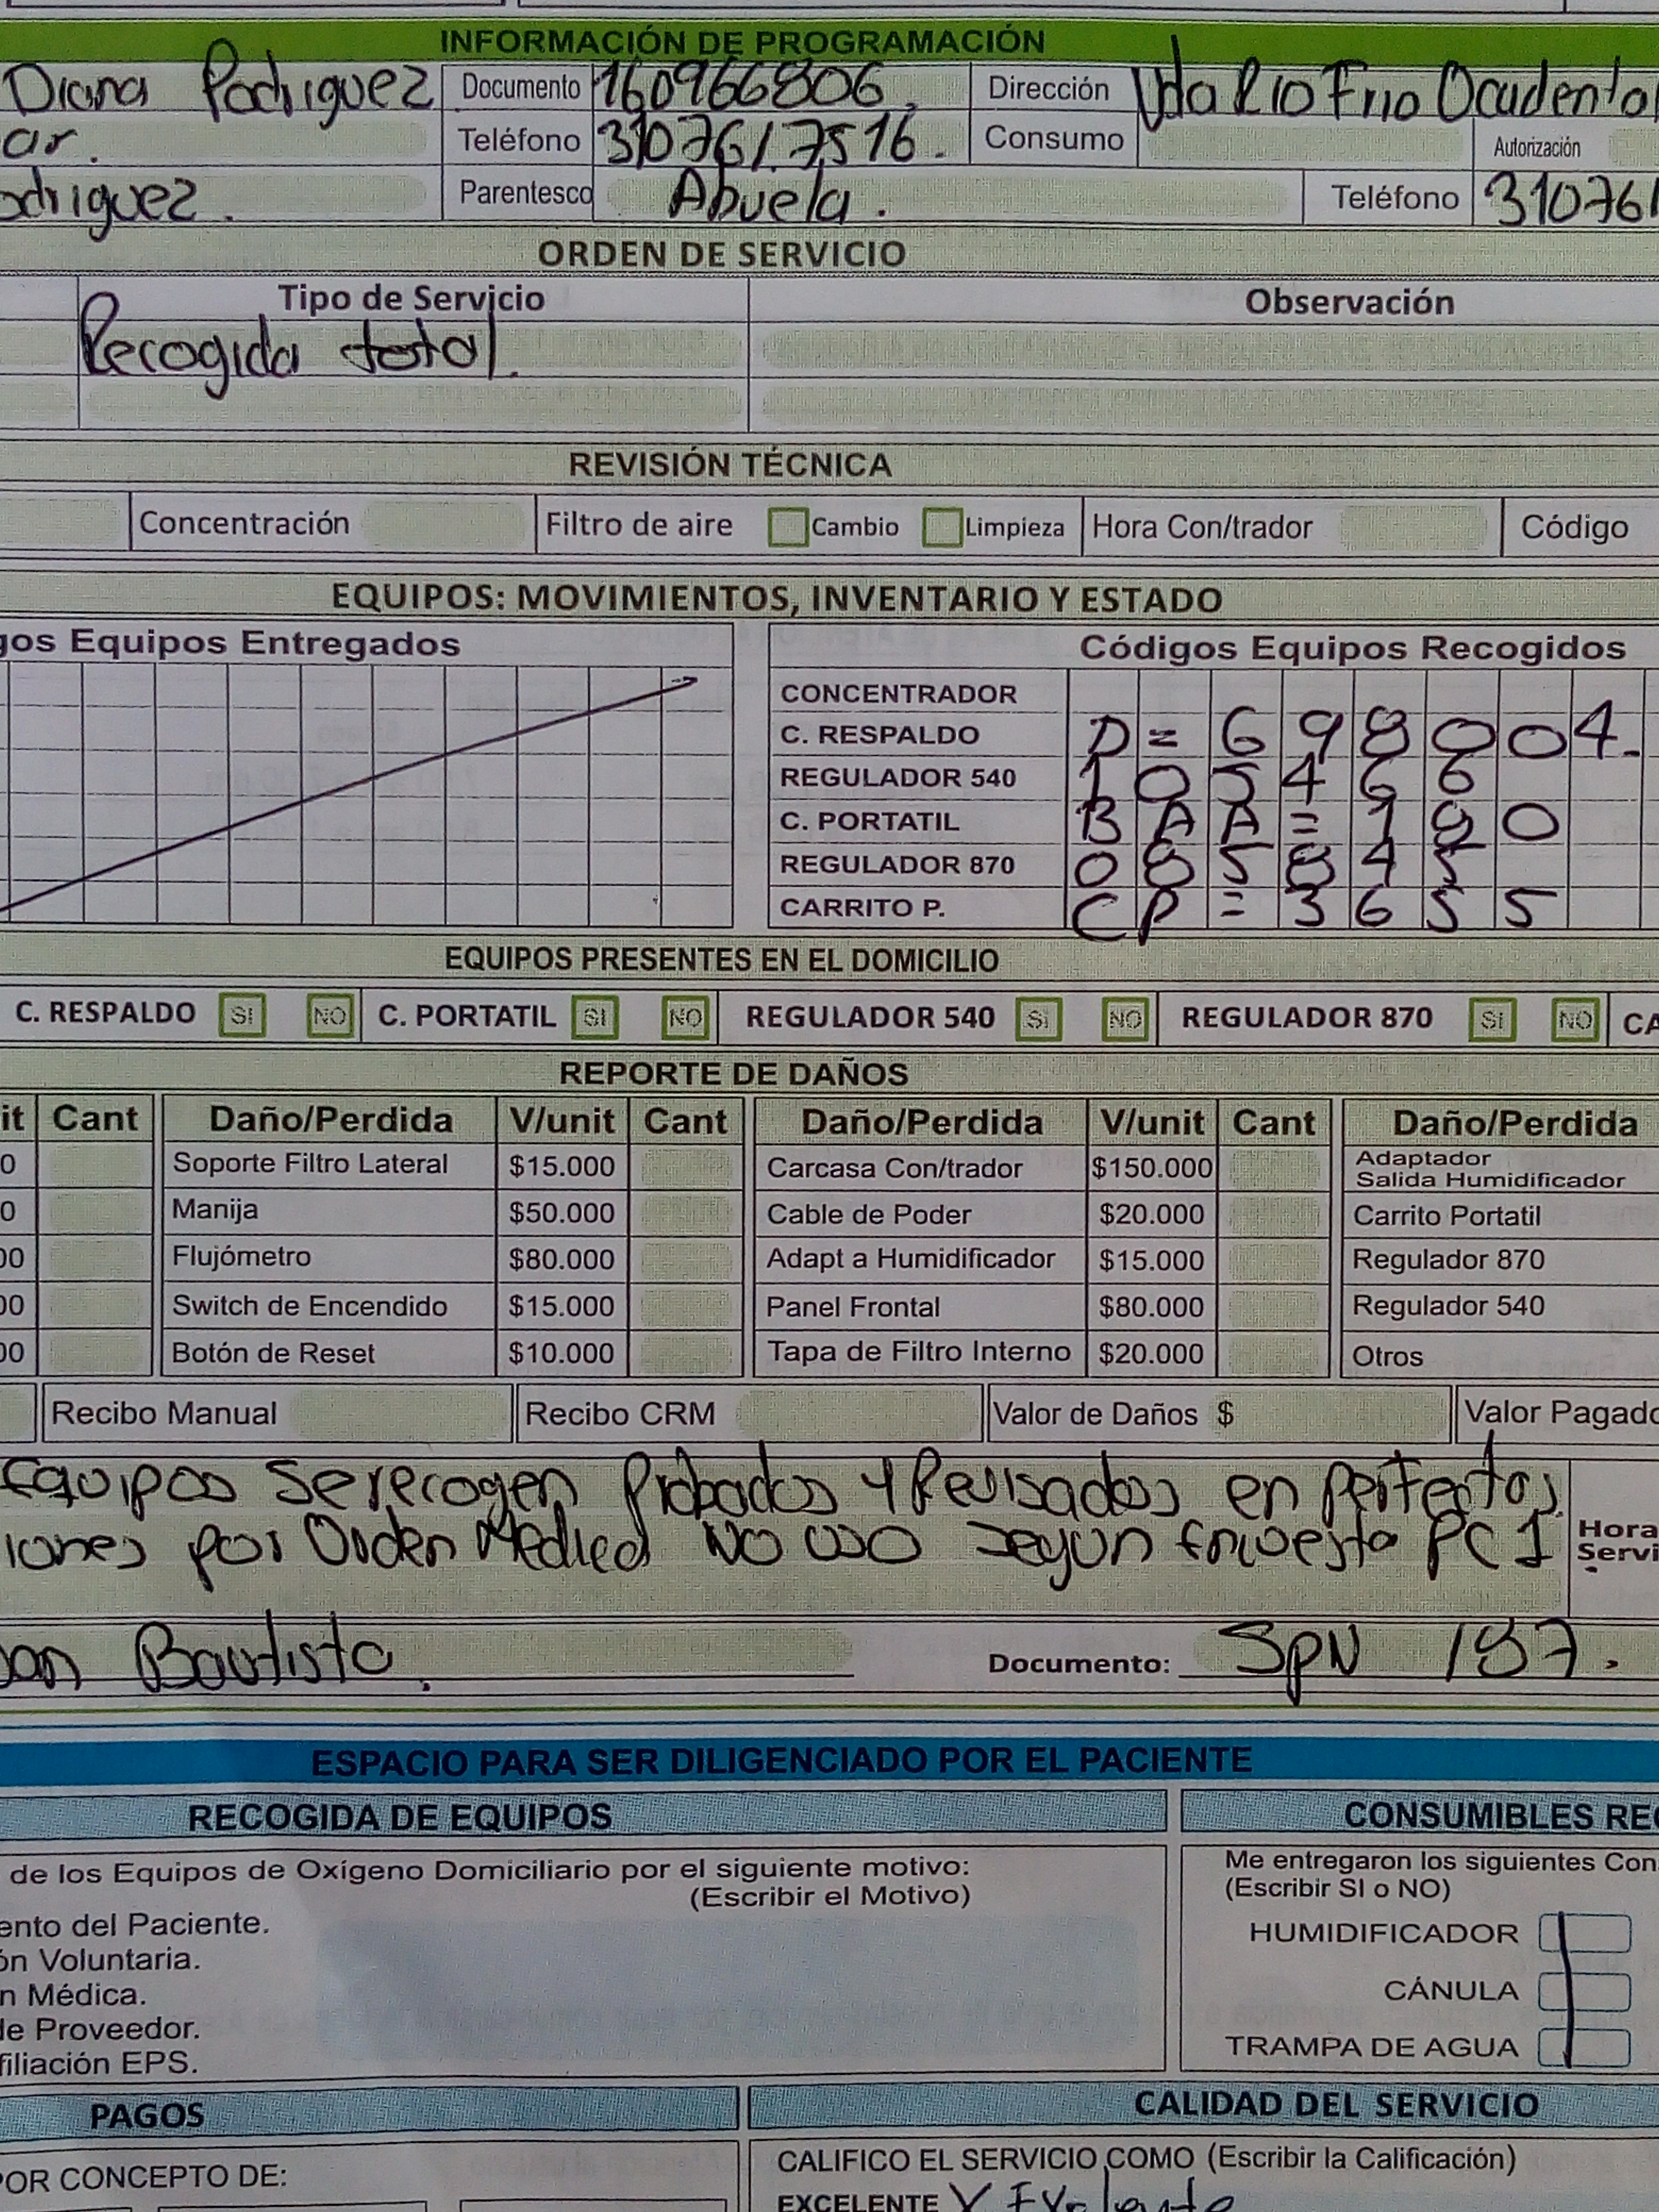 INFORMACIÓN DE PROGRAMACIÓN
Diana Rodriguez Documento 160966806. Dirección Vda Rio Frio Ocidental
ar. Teléfono 3107617516. Consumo Autorización
odriguez. Parentesco Abuela. Teléfono 310761
ORDEN DE SERVICIO
Tipo de Servicio Observación
Recogida total.
REVISIÓN TÉCNICA
Concentración Filtro de aire Cambio Limpieza Hora Con/trador Código
EQUIPOS: MOVIMIENTOS, INVENTARIO Y ESTADO
gos Equipos Entregados Códigos Equipos Recogidos
CONCENTRADOR
C. RESPALDO D = 698004.
REGULADOR 540 105466
C. PORTATIL BAA = 180
REGULADOR 870 085845
CARRITO P. CP = 3655
EQUIPOS PRESENTES EN EL DOMICILIO
C. RESPALDO SI NO C. PORTATIL SI NO REGULADOR 540 SI NO REGULADOR 870 SI NO CA
REPORTE DE DAÑOS
it Cant Daño/Perdida V/unit Cant Daño/Perdida V/unit Cant Daño/Perdida
0 Soporte Filtro Lateral $15.000 Carcasa Con/trador $150.000 Adaptador Salida Humidificador
0 Manija $50.000 Cable de Poder $20.000 Carrito Portatil
00 Flujómetro $80.000 Adapt a Humidificador $15.000 Regulador 870
00 Switch de Encendido $15.000 Panel Frontal $80.000 Regulador 540
00 Botón de Reset $10.000 Tapa de Filtro Interno $20.000 Otros
Recibo Manual Recibo CRM Valor de Daños $ Valor Pagado
Equipos Se recogen Probados y Revisados en perfectas
iones por Orden Medica NO USO segun encuesta PC1 Hora Servi
an Bautista. Documento: SPN 187.
ESPACIO PARA SER DILIGENCIADO POR EL PACIENTE
RECOGIDA DE EQUIPOS CONSUMIBLES REC
de los Equipos de Oxígeno Domiciliario por el siguiente motivo: Me entregaron los siguientes Con
(Escribir el Motivo) (Escribir SI o NO)
ento del Paciente. HUMIDIFICADOR
ón Voluntaria.
n Médica. CÁNULA
de Proveedor.
filiación EPS. TRAMPA DE AGUA
PAGOS CALIDAD DEL SERVICIO
POR CONCEPTO DE: CALIFICO EL SERVICIO COMO (Escribir la Calificación)
EXCELENTE X Excelente